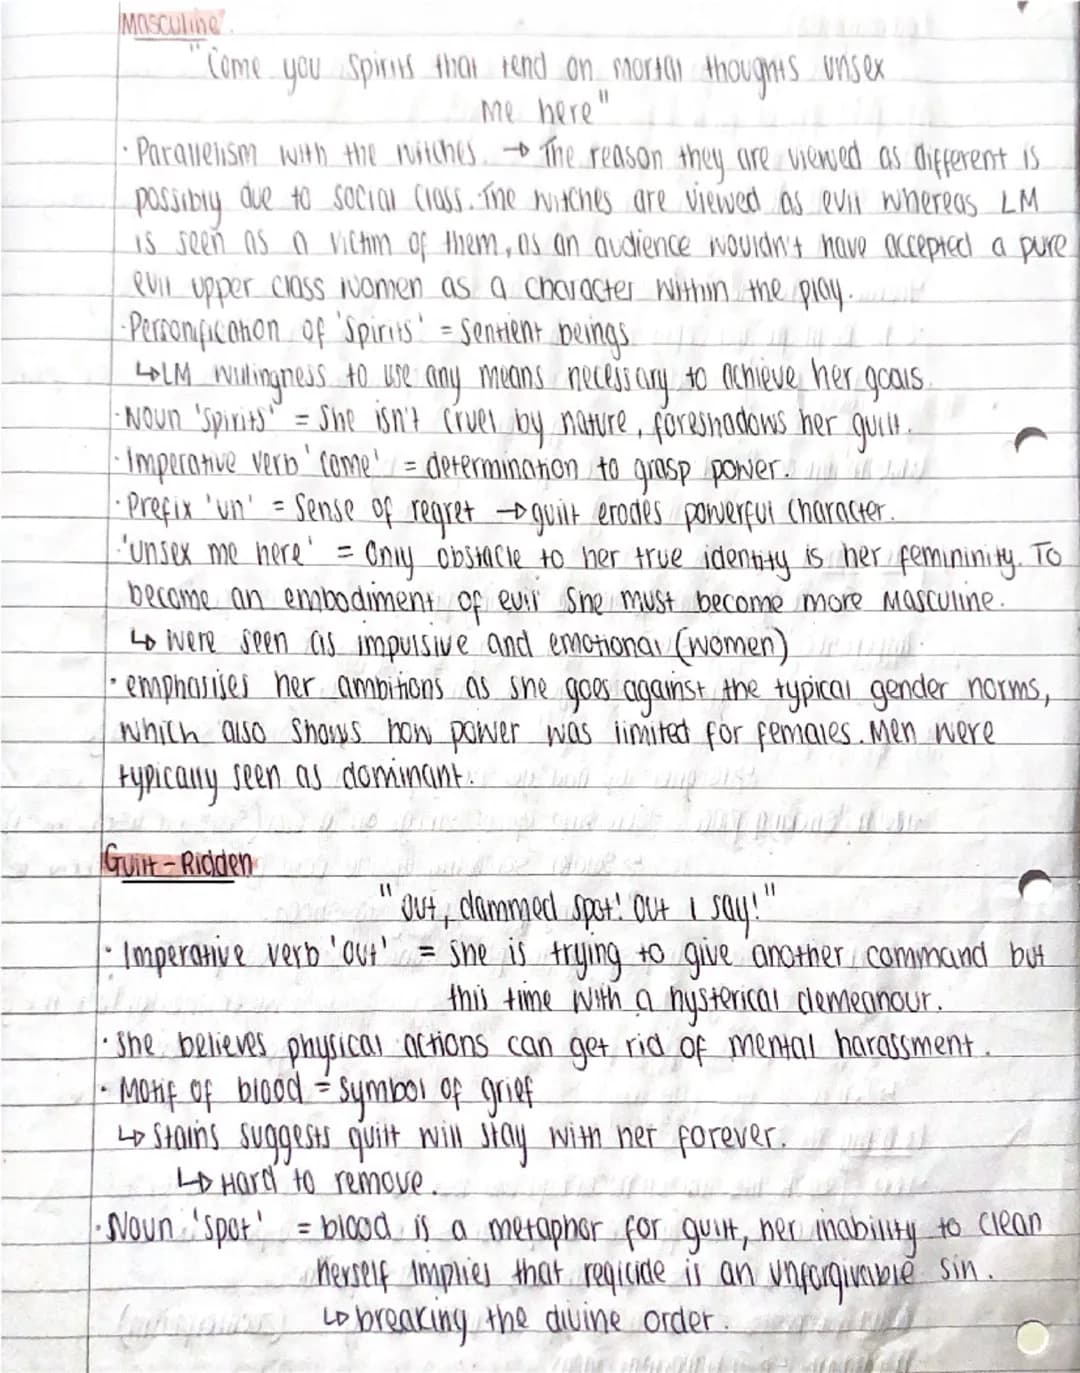 Masculine
"Come you spirits that tend on mortal thoughts unsex
me here"
· Parallelism with the witches. → The reason they are viewed as different is
possibly due to social class. The witches are viewed as evil whereas LM
is seen as a victim of them, as an audience wouldn't have accepted a pure
evil upper class women as a character within the play.
· Personification of 'Spirits' = Sentient beings
↳ LM willingness to use any means necessary to achieve her goals.
· Noun 'Spirits' = She isn't cruel by nature, foreshadows her guilt.
· Imperative verb 'come' = determination to grasp power.
· Prefix 'un' = Sense of regret → guilt erodes powerful character.
· 'unsex me here' = Only obstacle to her true identity is her femininity. To
become an embodiment of evil she must become more masculine.
↳ were seen as impulsive and emotional (women)
· emphasises her ambitions as she goes against the typical gender norms,
which also shows how power was limited for females. Men were
typically seen as dominant.
Guilt-Ridden
"Out, dammed spot! Out I say!"
· Imperative verb 'out' = she is trying to give another command but
this time with a hysterical demeanour.
· She believes physical actions can get rid of mental harassment.
· Motif of blood = Symbol of grief
↳ Stains suggests guilt will stay with her forever.
↳ Hard to remove.
· Noun 'spot' = blood is a metaphor for guilt, her inability to clean
herself implies that regicide is an unforgivable sin.
↳ breaking the divine order.